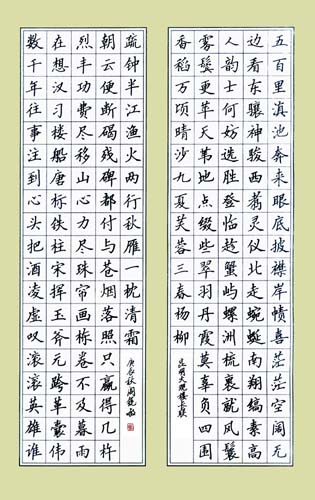 五百里滇池奔来眼底披襟岸帻喜茫茫空阔无
边看东骧神骏西翥灵仪北走蜿蜒南翔缟素高
人韵士何妨选胜登临趁蟹屿螺洲梳裹就风鬟
雾鬓更苹天苇地点缀些翠羽丹霞莫辜负四围
香稻万顷晴沙九夏芙蓉三春杨柳
昆明大观楼长联
数千年往事注到心头把酒凌虚叹滚滚英雄谁
在想汉习楼船唐标铁柱宋挥玉斧元跨革囊伟
烈丰功费尽移山心力尽珠帘画栋卷不及暮雨
朝云便断碣残碑都付与苍烟落照只赢得几杵
疏钟半江渔火两行秋雁一枕清霜
庚辰秋